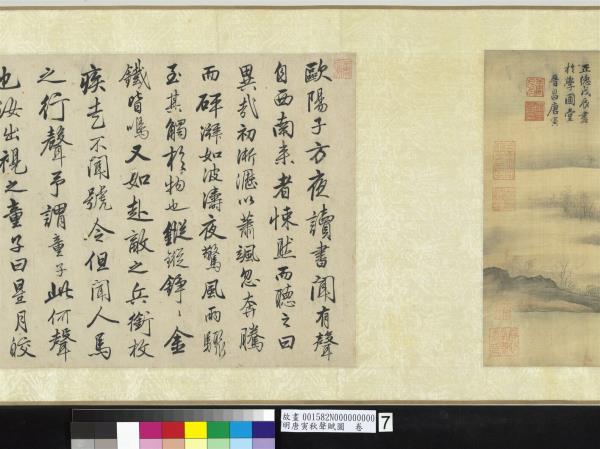 正德戊辰畫
於學圃堂
晉昌唐寅
歐陽子方夜讀書聞有聲
自西南来者悚然而聽之曰
異哉初淅瀝以蕭颯忽奔騰
而砰湃如波濤夜驚風雨驟
至其觸於物也鏦鏦錚〻金
鐵皆鳴又如赴敵之兵銜枚
疾走不聞號令但聞人馬
之行聲予謂童子此何聲
也汝出視之童子曰星月皎
故畫 001582N000000000
明唐寅秋聲賦圖 卷
7